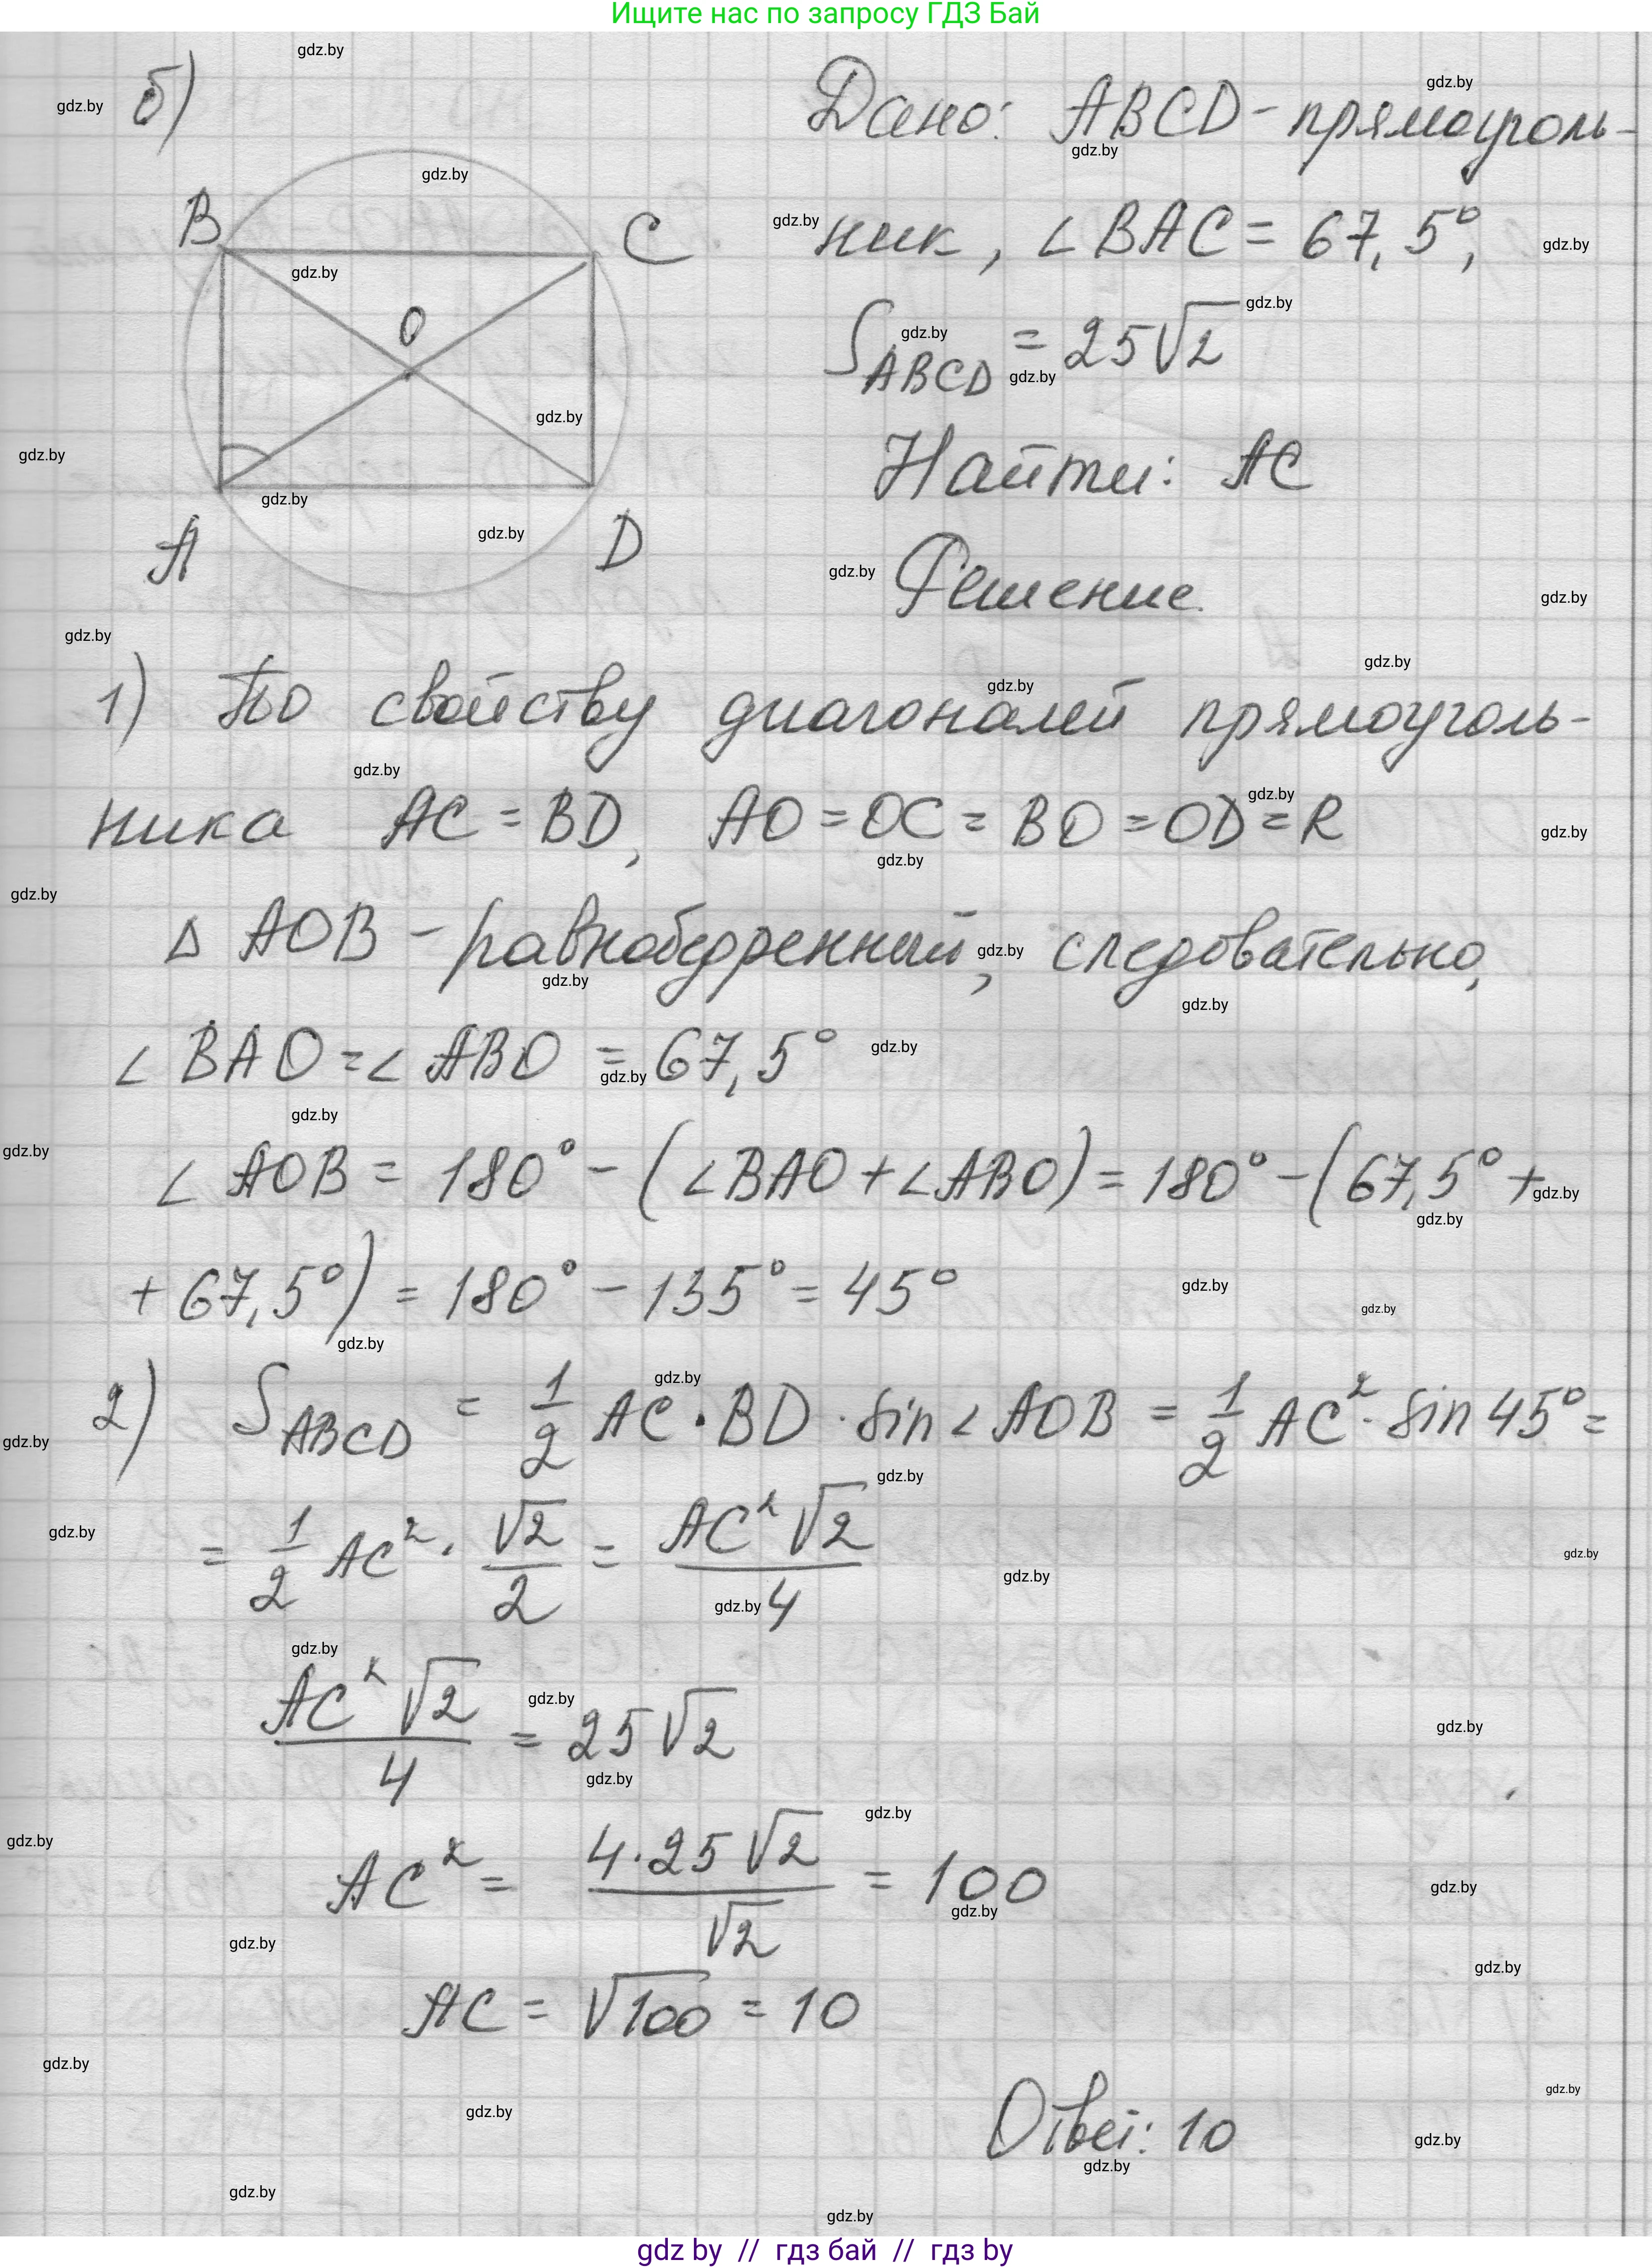 Ищите нас по запросу ГДЗ Бай
б)
B
C
O
A
D
Дано: ABCD - прямоуголь-
ник, ∠BAC = 67,5°,
S_ABCD = 25√2
Найти: AC
Решение.
1) По свойству диагоналей прямоуголь-
ника AC = BD, AO = OC = BO = OD = R
Δ AOB - равнобедренный, следовательно,
∠ BAO = ∠ ABO = 67,5°
∠ AOB = 180° - (∠BAO + ∠ABO) = 180° - (67,5° +
+ 67,5°) = 180° - 135° = 45°
2) S_ABCD = 1/2 AC · BD · sin ∠ AOB = 1/2 AC² · sin 45° =
= 1/2 AC² · √2/2 = AC²√2/4
AC²√2/4 = 25√2
AC² = 4·25√2/√2 = 100
AC = √100 = 10
Ответ: 10
gdz by // гдз бай // гдз by